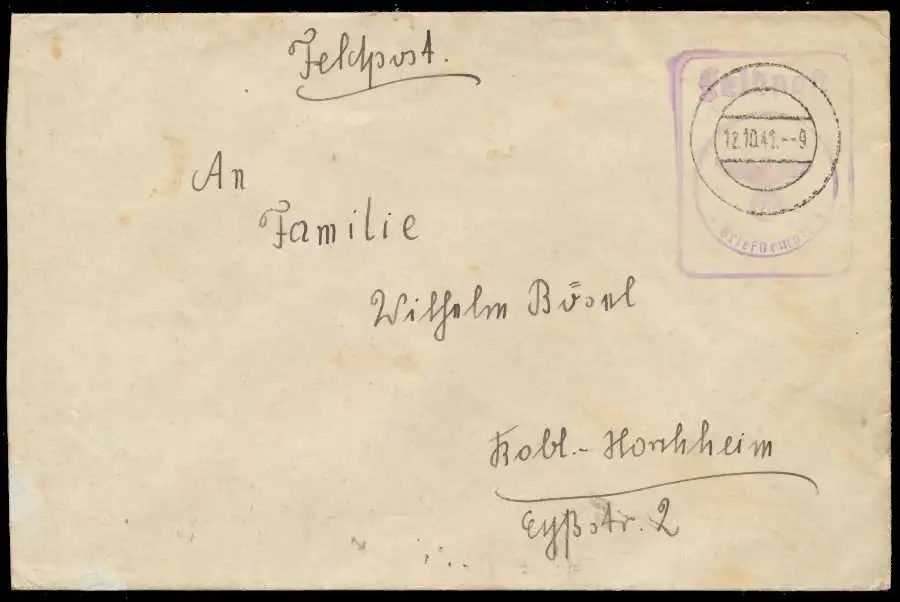 Feldpost.
Feldpost
12.10.41.--9
Briefstempel
An
Familie
Wilhelm Bösel
Kobl.-Horchheim
Eyßstr. 2